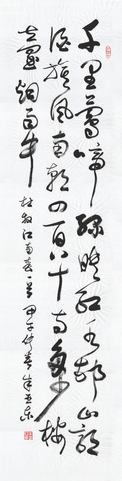 千里莺啼绿映红水村山郭
酒旗风南朝四百八十寺多少楼
台烟雨中 杜牧江南春一首 甲子仲春